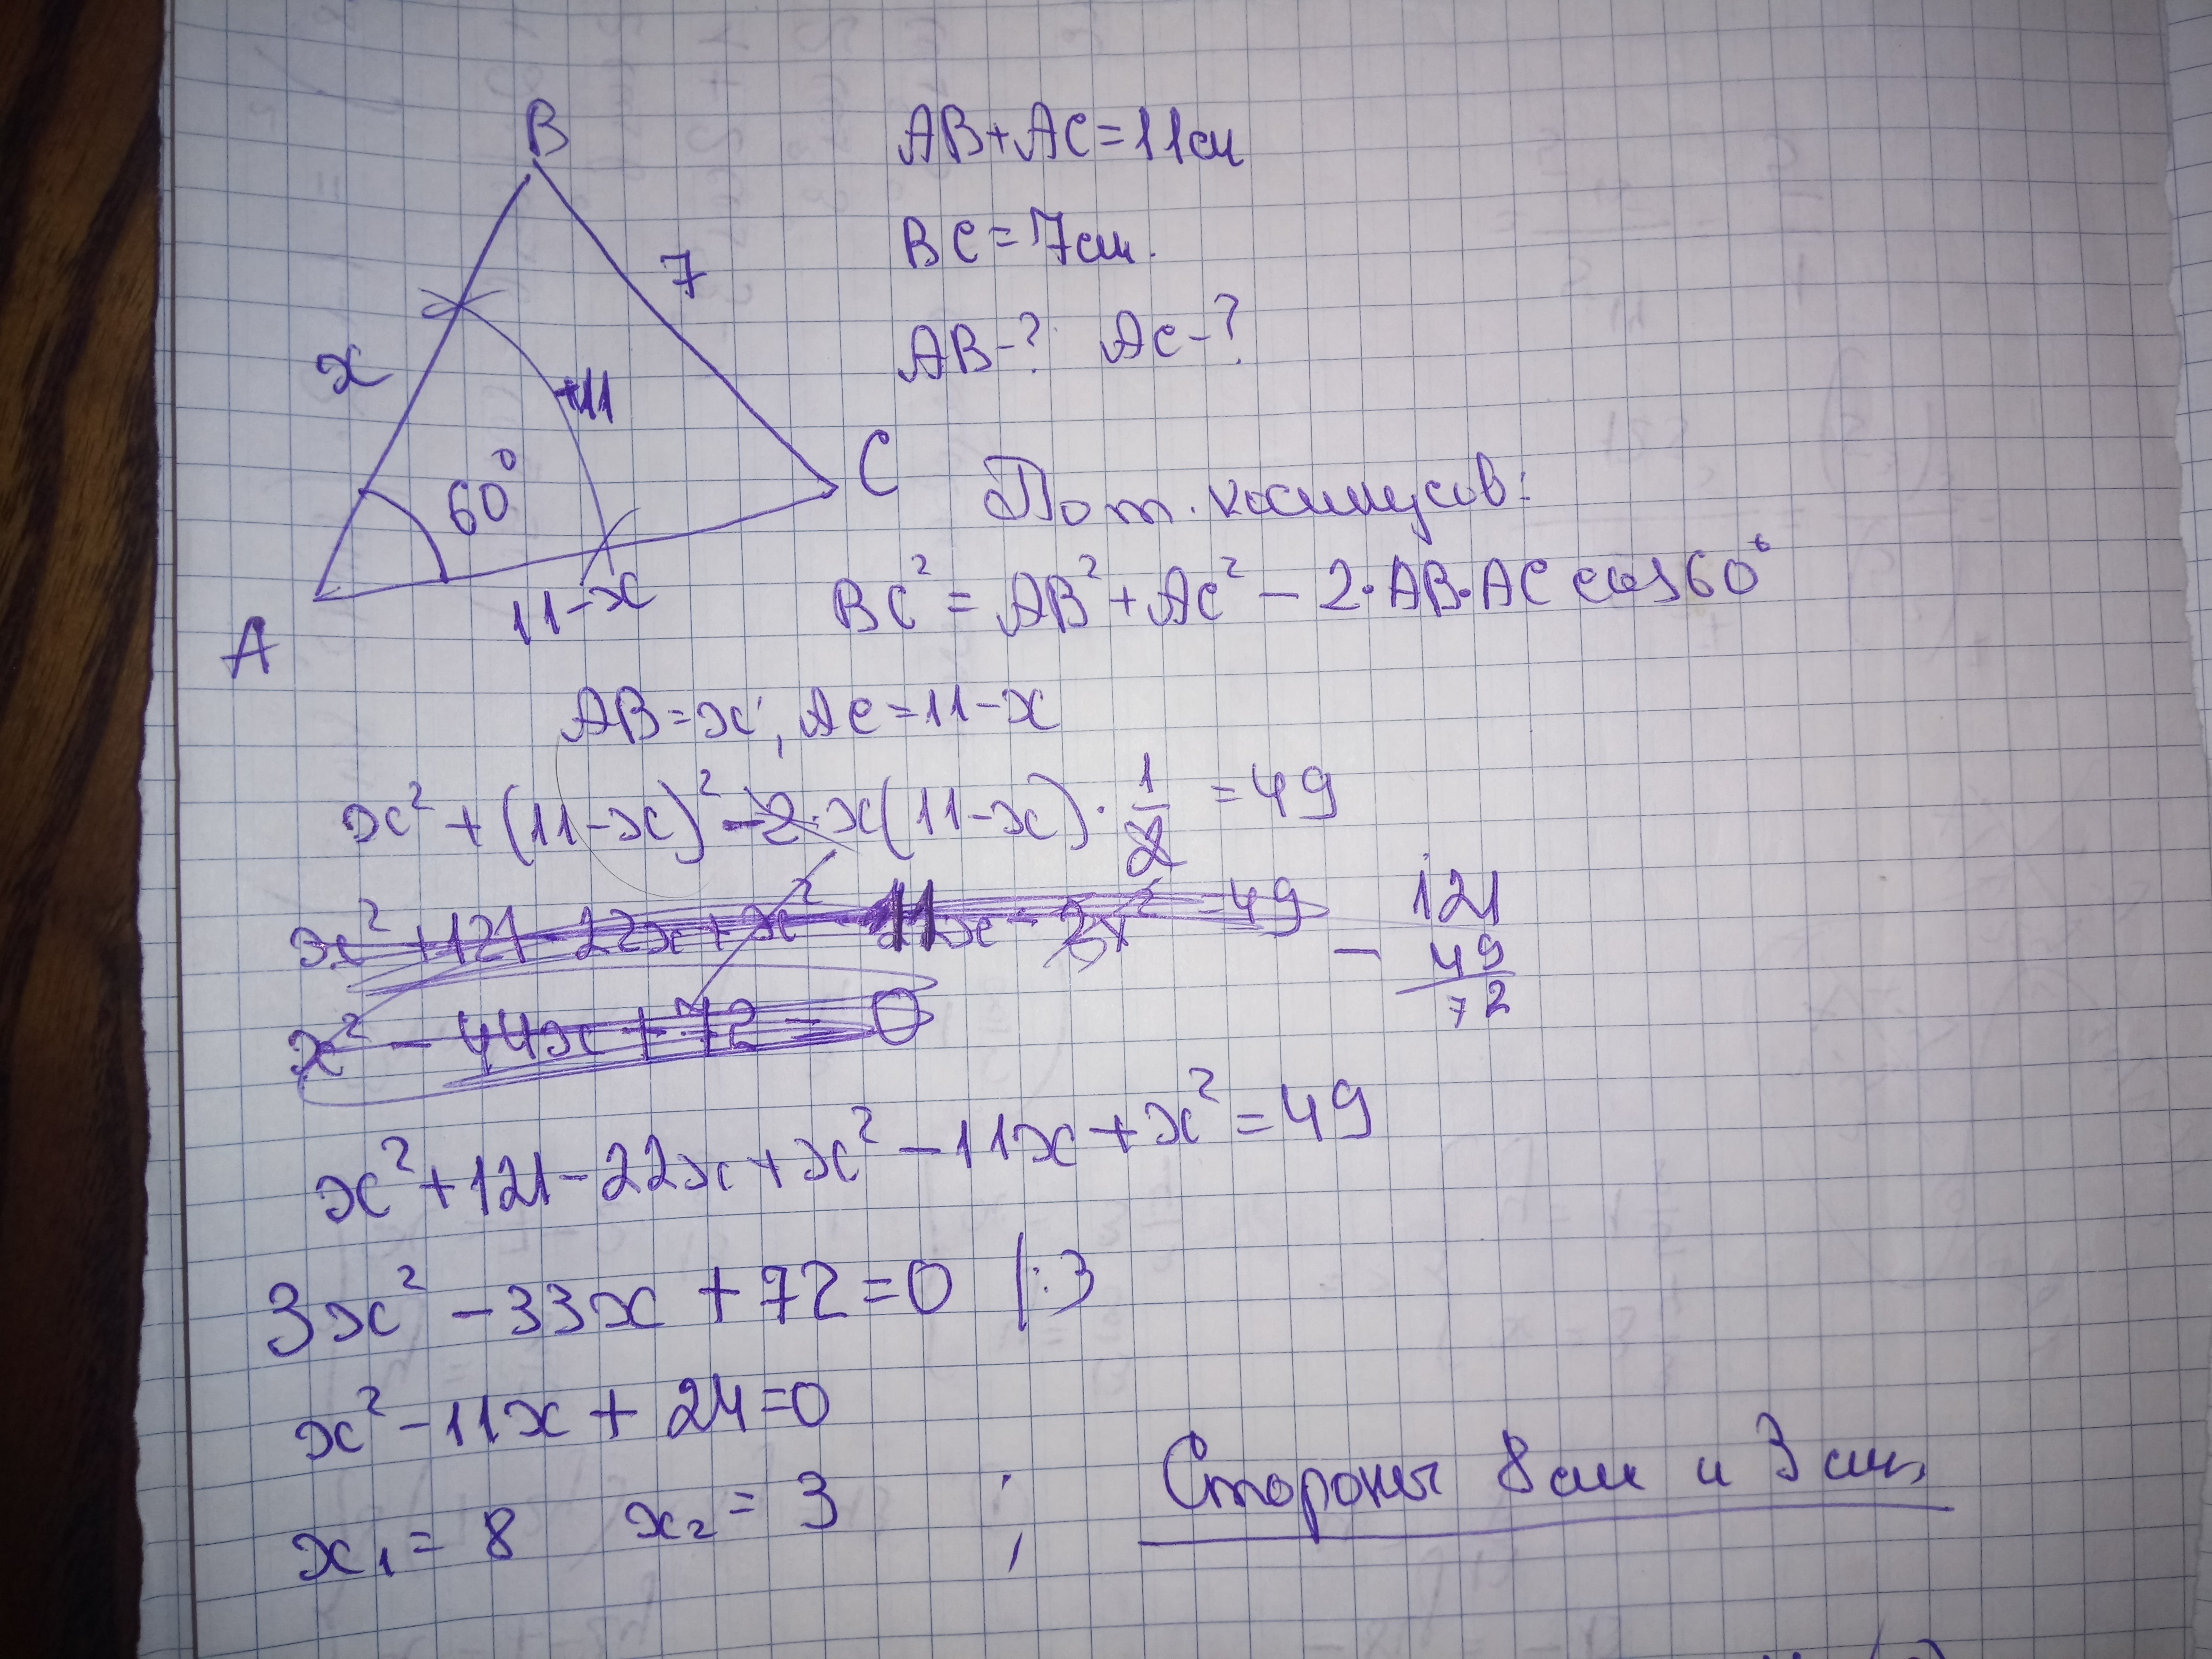 B
AB+AC=11см
BC=7см.
7
AB-? AC-?
x
+11
60°
C
По т. косинусов:
11-x
BC²=AB²+AC²-2·AB·AC cos60°
A
AB=x; AC=11-x
x²+(11-x)²-2·x(11-x)·1/2=49
x²+121-22x+x²-11x-2x²=49
121
- 49
72
x²-44x+72=0
x²+121-22x+x²-11x+x²=49
3x²-33x+72=0 |:3
x²-11x+24=0
x₁=8 x₂=3 ;
Стороны 8см и 3см.